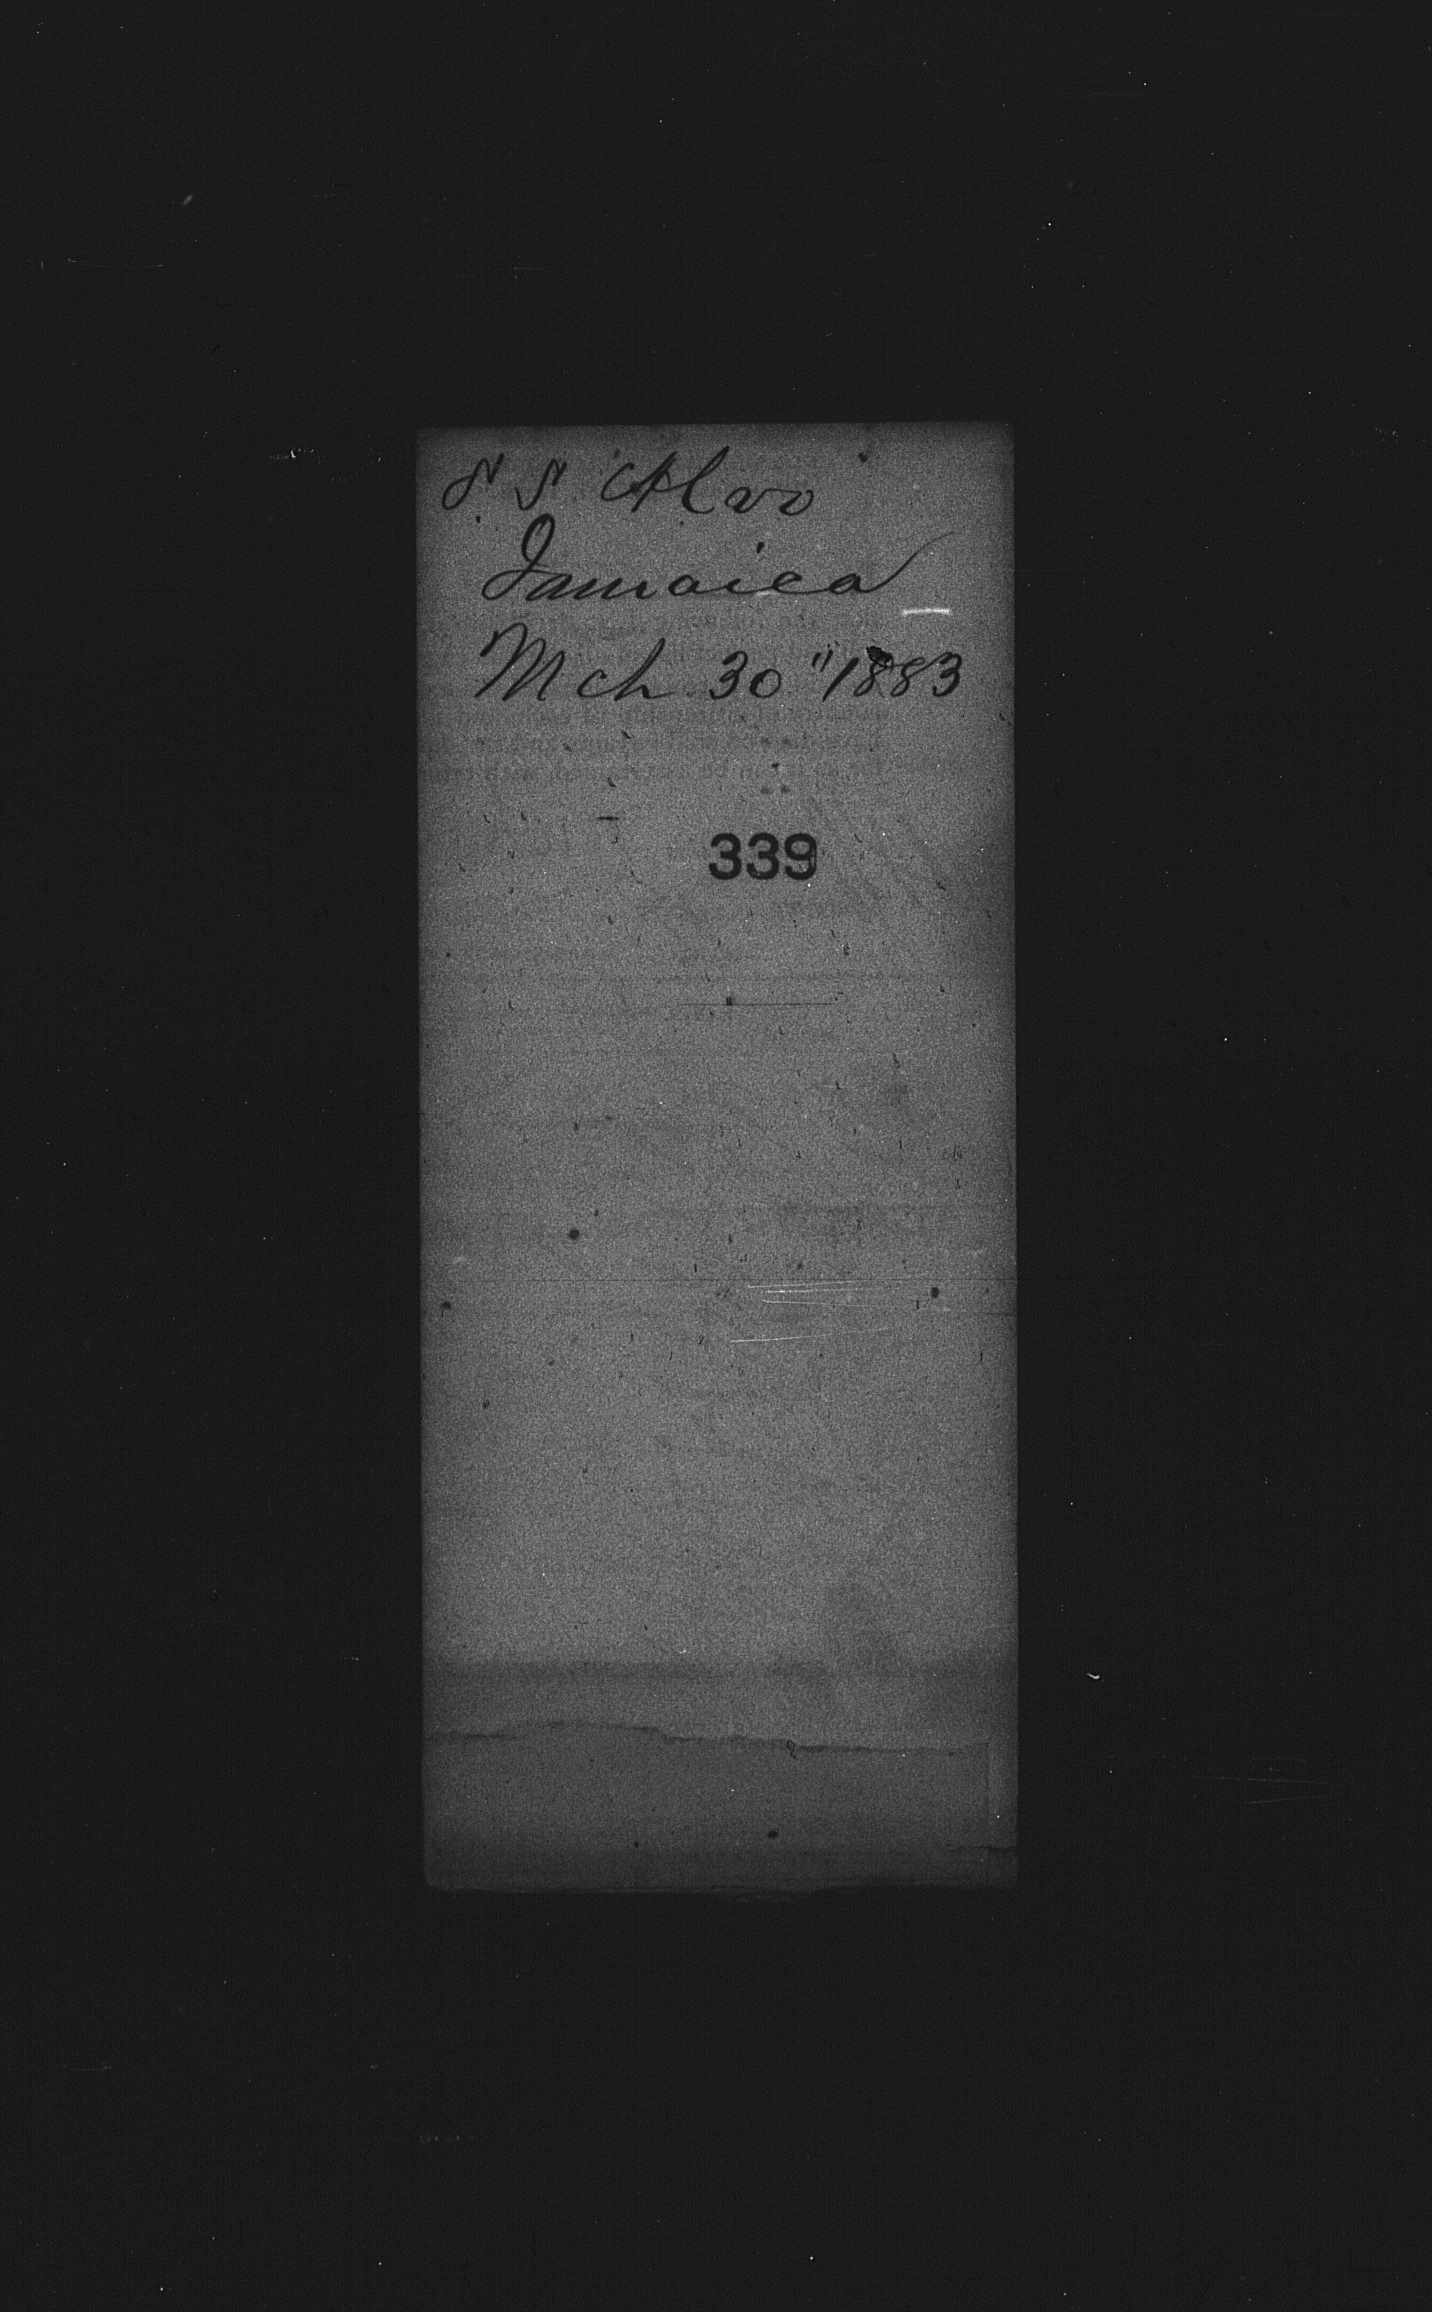 S S Alvo
Jamaica
Mch 30" 1883
339